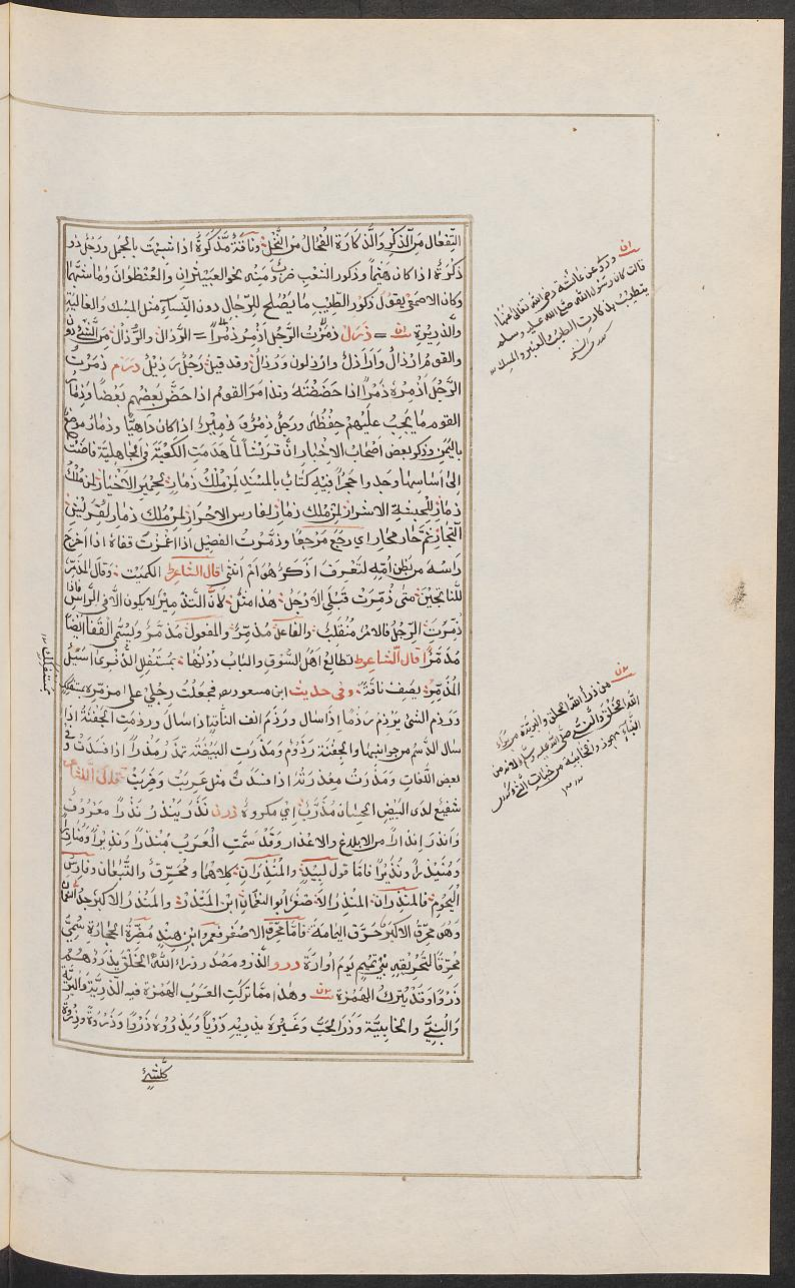 التِّفعال من الذِّكر والذَّكارة الفُحال من النَّخل وناقة مُذَكَّرة اذا شبهت بالجمل ورجل ذو
ذكرة اذا كان وذكور النعب ضرب ومنه نحو العبيثران والعنظوان وما
وكان الاصمعي يقول ذكور الطِّيب ما يصلح للرّجال دون النساء مثل المسك والغالية
والذريرة ذرل الرَّجل الرَّذال والرُّذال من الشيء
والقوم ارذال وارذل وارذلون ورذال وقد قيل رجل رذيل ذرم ذمرت
الرَّجل اذمره ذمرًا اذا حضضته وتذامر القوم اذا حضَّ بعضهم بعضًا وذمار
القوم ما يجب عليهم حفظه ورجل ذمر وذمير اذا كان داهيًا وذمار موضع
باليمن وذكر بعض اصحاب الاخبار انَّ قريشًا لما هدمت الكعبة في الجاهلية فافضت
الى اساسها وجدوا حجرًا فيه كتاب بالمسند لمن ملك ذمار لحمير الاخيار لمن ملك
ذمار للحبشة الاشرار لمن ملك ذمار لفارس الاحرار لمن ملك ذمار لقريش
التجار ثم حار محار اي رجع مرجعًا وذمّرت الفصيل اذا غمزت قفاه اذا اخرج
راسه من بطن امه لتعرف اذكر هو ام انثى قال الشاعر الكميت وقال المذمر
للناتجين متى ذمرت قبلي الارجل هذا مثل لانَّ التذمير لا يكون الا في الراس فاذا
ذمرت الرِّجل فالامر منقلب والفاعل مذمِّر والمفعول مذمَّر ويُسمَّى القفا ايضًا
مُذمَّرًا قال الشاعر تطالع اهل السوق والباب دونها بمستفلك الذفرى اسيل
المذمَّر يصف ناقة وفي حديث ابن مسعود فجعلت رجلي على مذمره
ورذم الشيء يرذم رذمًا اذا سال ورذم انف الناقة اذا سال ورذمت الجفنة اذا
سال الدسم من جوانبها والجفنة رذوم ومذرت البيضة تمذر مذرًا اذا فسدت وفي
بعض اللغات ومذرت معذرته اذا فسدت مثل عربت وذربت
شفيع لدى البيض الحسان مذرَّب اي مكروه ذرن نذر ينذر نذرًا معروف
وانذر انذارًا من الابلاغ والاعذار وقد سمَّت العرب منذرًا ونذيرًا ومناذرًا
ومنيذرًا ونذيرًا فامّا قول لبيد والمنذران كلاهما ومحرّق والتبّعان وفارس
اليحموم فالمنذران المنذر الاصغر ابو النعمان ابن المنذر والمنذر الاكبر جد النعمان
وهو محرّق الاكبر حرّق اليمامة فامّا محرّق الاصغر فعمرو ابن هند مضرّط الحجارة سُمِّي
محرّقًا لتحريقه بني تميم يوم اوارة ذرو الذرو مصدر ذراء الله الخلق يذروهم
ذروًا وقد يترك الهمزة وهذا ممّا تركت العرب الهمزة فيه الذرّيّة والبريّة
والنبيّ والخابية وذرا الحبّ وغيره يذريه ذريًا ويذروه ذروًا وذروة وذروة
كلّ شيء
وروى عن عائشة رضي الله تعالى عنها
قالت كان رسول الله صلى الله عليه وسلم
يتطيب بذكارة الطيب العنبر والمسك
بمستفلك
من ذرأ الله الخلق والبرية من برأ
الله الخلق والنبي صلى الله عليه وسلم لانه من
النبأ مهموز والخابية من خبأت الشيء